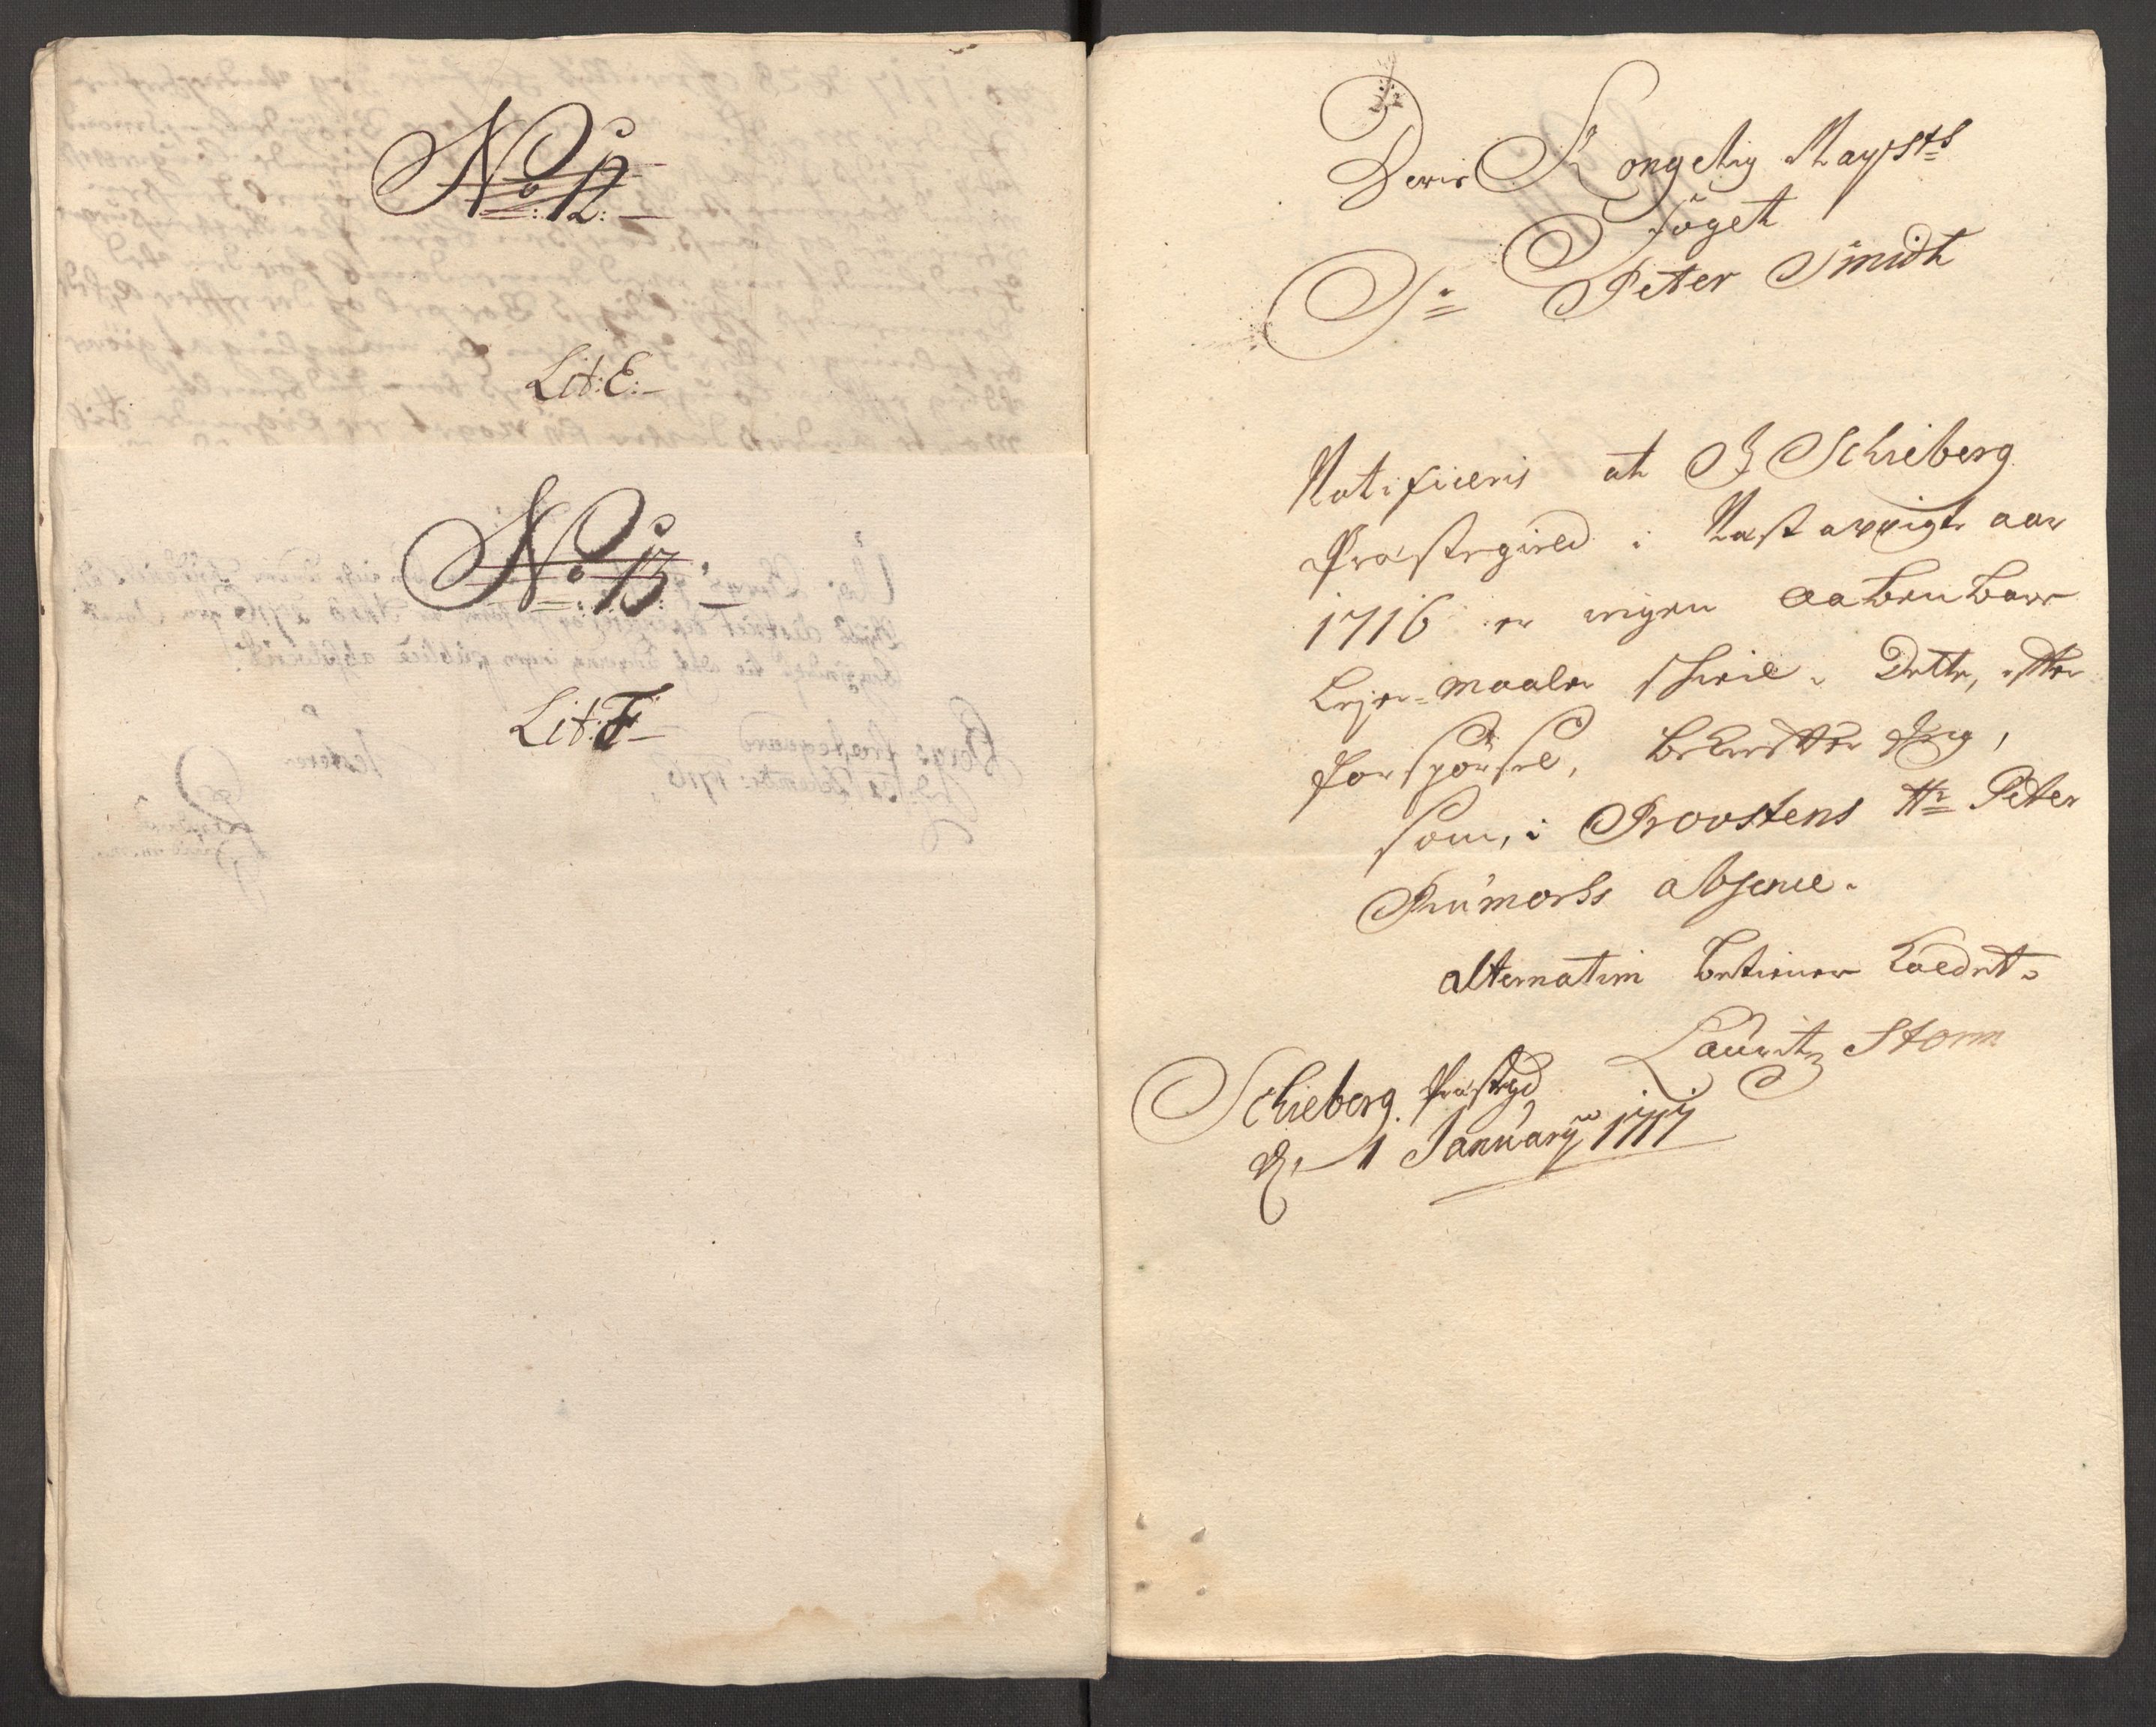 No: 12:
Lit: E:
No: 13:
Lit: F
Deris Kongelig Mayssts
Foget
Sr Peter Smidt
Notificeris at I Schieberg
Præstegield i Næst avvigte aar
1716 er ingen aabenbare
Lejer-maaler skeed. Dette, efter
forspørsel, bekræfter Jeg,
som, i Provstens Hr Peter
absence.
alternatim betiener Kaldet.
Lauritz Storm
Schieberg Præstegd
d. 1 January 1717